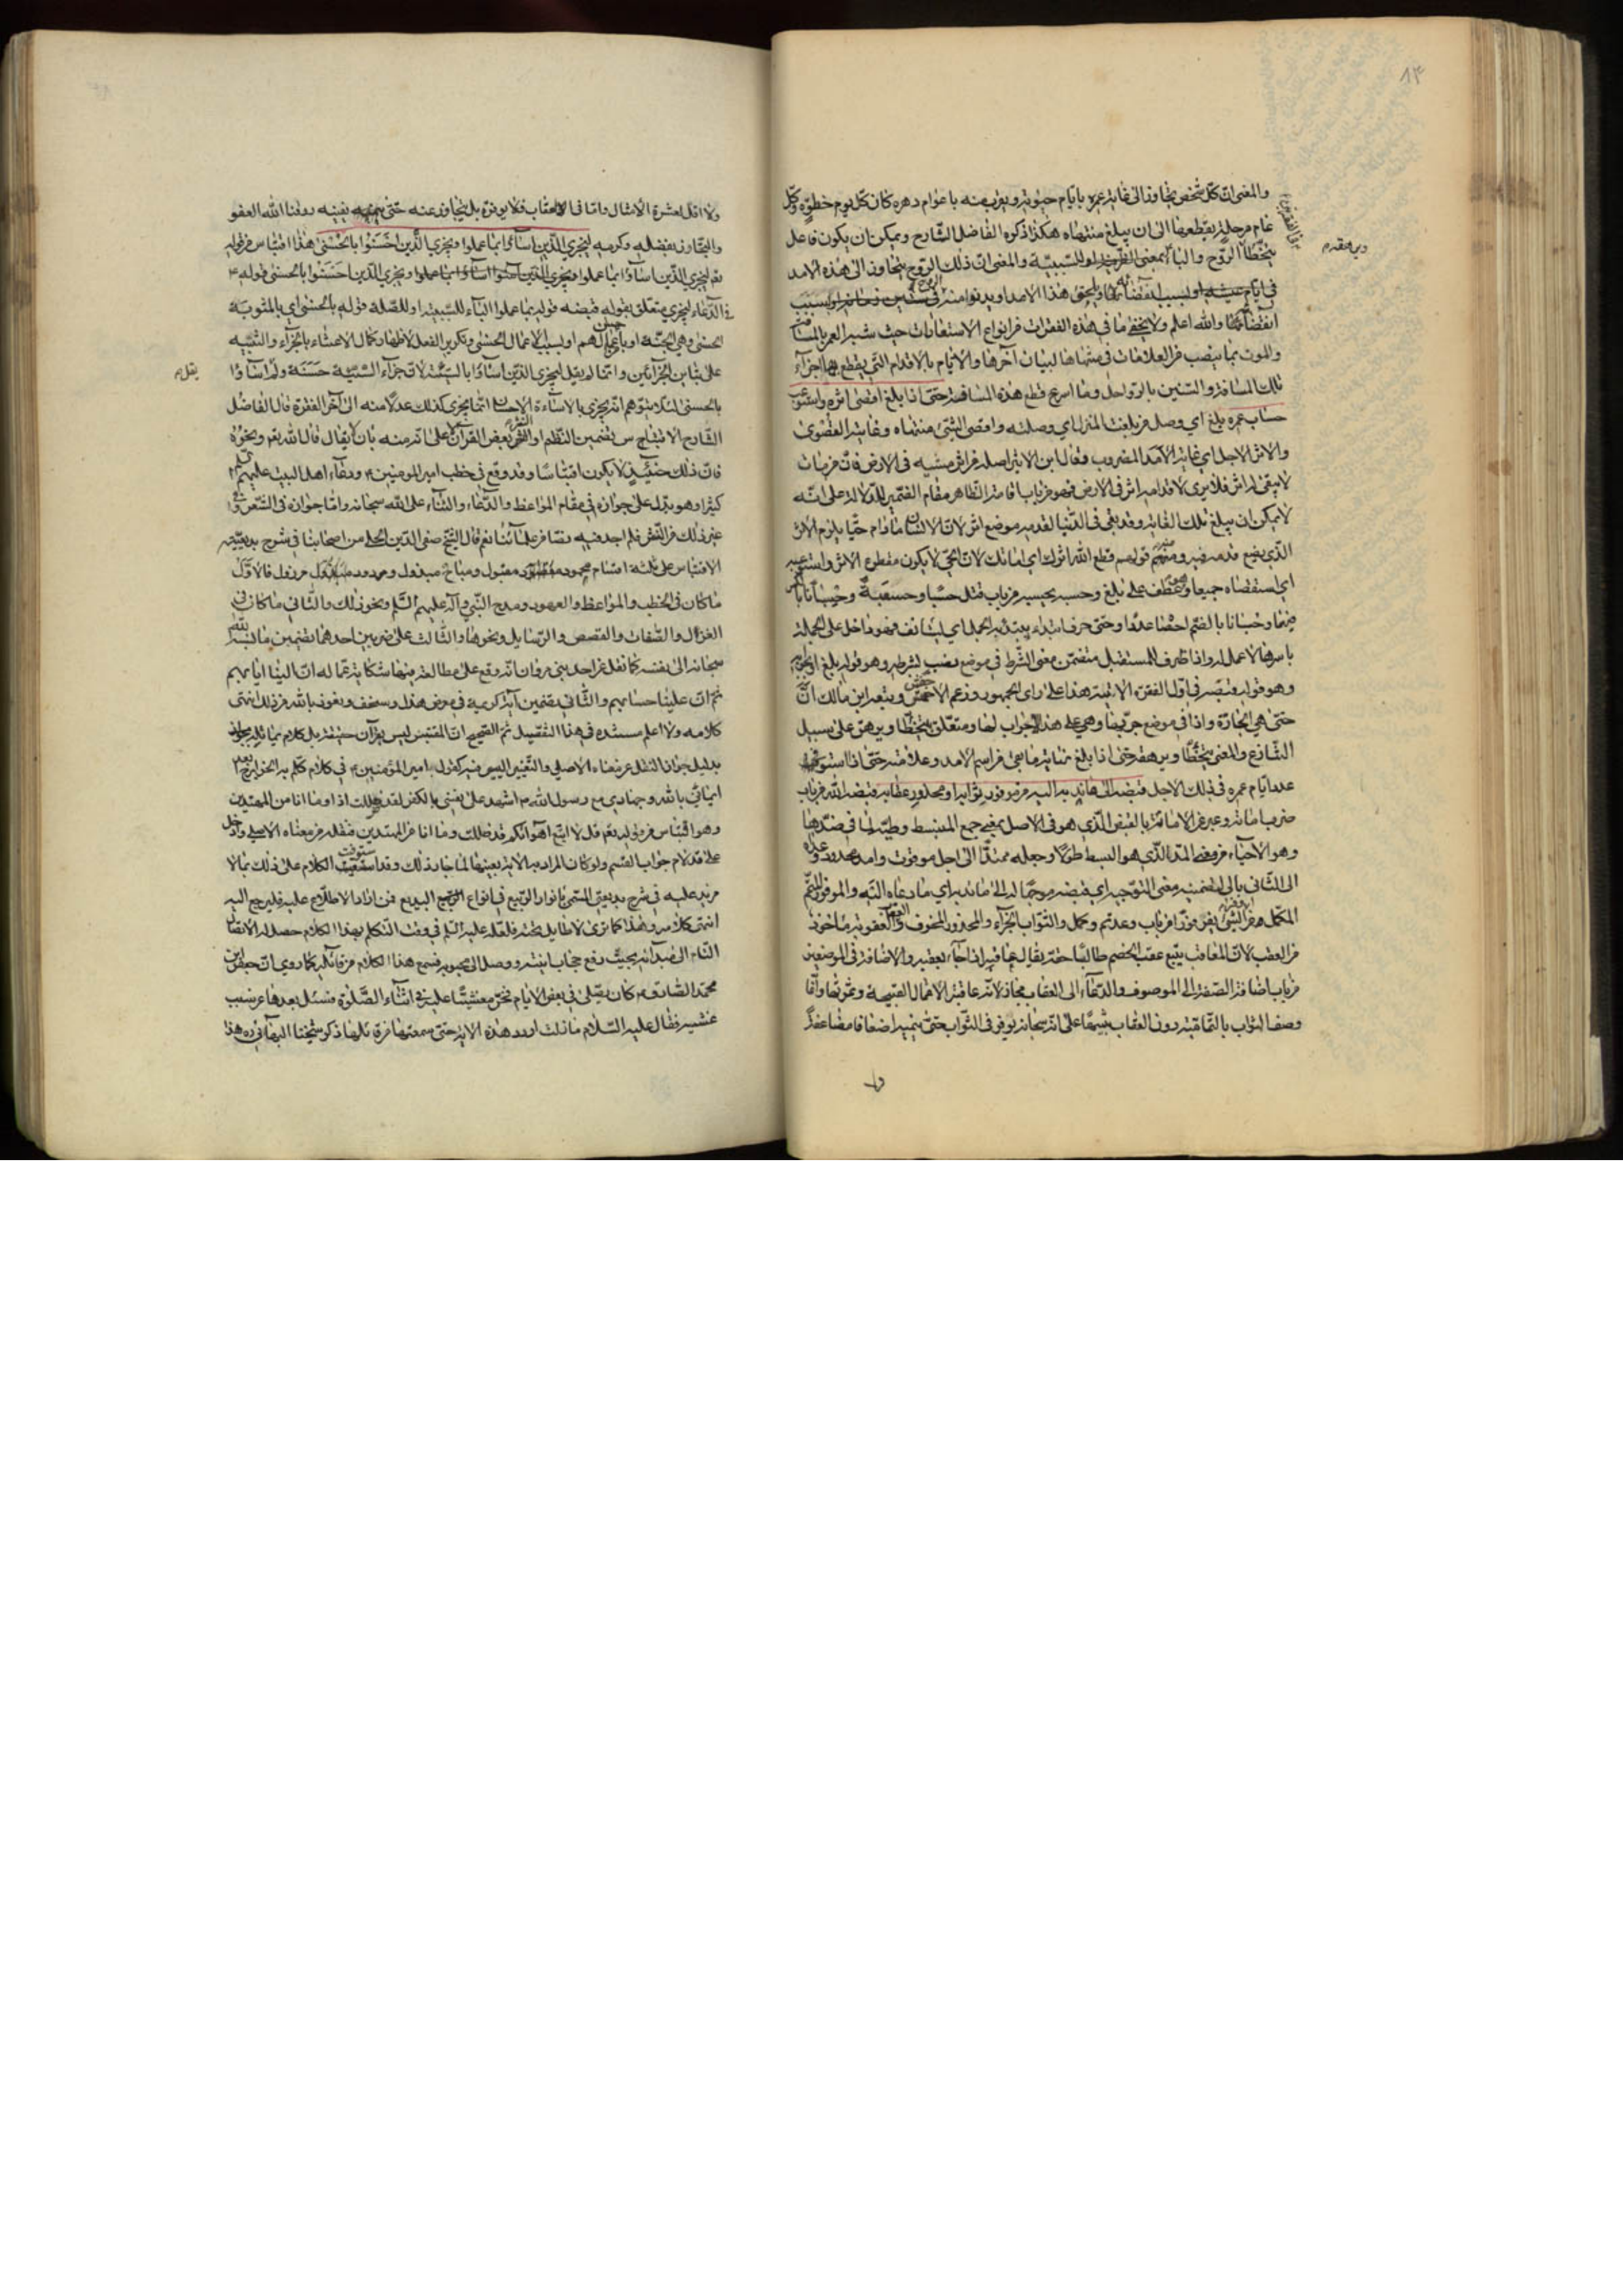 ٨٣
والمعنى ان كل شخص يتجاوز الى غاية عمره بايام حيوته ويقرب منه باعوام دهره كان كل يوم خطوة وكل
عام مرحلة يقطعها الى ان يبلغ منتهاه هكذا ذكره الفاضل الشارح ويمكن ان يكون فاعل
يتخطأ الروح والباء بمعنى او للسببية والمعنى ان ذلك الروح يتجاوز الى هذه الامد
في ايام هذا الامد ويدنو منه
انقضائها والله اعلم ولا يخفى ما في هذه الفقرات من انواع الاستعارات حيث شبه العمر بالمسافة
والموت بما ينصب من العلامات في منتهاها لبيان آخرها والايام بالاقدام التي يقطع بها اجزاء
تلك المسافة والسنين بالرواحل وما اسرع قطع هذه المسافة حتى اذا بلغ اقصى اثره واستوعب
حساب عمره بلغ اي وصل من بلغت المنزل اي وصلته واقصى الشيء منتهاه وغايته القصوى
والاثر الاجل اي غاية الامد المضروب وقال ابن الاثير اصله من اثر مشيه في الارض فان من مات
لا يبقى له اثر فلا يرى لاقدامه اثر في الارض فهو من باب اقامة الظاهر مقام الضمير للدلالة على انه
لا يمكن ان يبلغ تلك الغاية وقد بقي في الدنيا لقدمه موضع اثر لان الانسان ما دام حيا يلزم الاثر
الذي يضع قدمه فيه ومنه قولهم قطع الله اثرك اي اماتك لان الحي لا يكون مقطوع الاثر واستوعب
اي استقصاه جميعا وهو عطف على بلغ وحسبه يحسبه من باب قتل حسبا وحسبة وحسبانا بالكسر
فيهما وحسبانا بالضم احصاه عددا وحتى حرف ابتداء يبتدأ به الجمل اي يستأنف فهو داخل على الجملة
باسرها لا عمل له واذا ظرف للمستقبل متضمن معنى الشرط في موضع نصب بشرطه وهو قوله بلغ او بجوابه
وهو قوله قبضه في اول الفقرة الآتية هذا على راي الجمهور وزعم الاخفش وتبعه ابن مالك ان
حتى هي الجارة واذا في موضع جر بها وهي على هذا لا جواب لها ومتعلق بيتخطأ ويرهق على سبيل
التنازع والمعنى يتخطأ ويرهقه حتى اذا بلغ نهاية ما بقي من اسم الامد وعلامته حتى اذا استوفى
عدد ايام عمره في ذلك الاجل قبضه الى ما ندبه اليه من موفور ثوابه او محذور عقابه قبضه الله من باب
ضرب اماته وعبر عن الاماتة بالقبض الذي هو في الاصل بمعنى جمع المنبسط وطيه لما في ضدها
وهو الاحياء من معنى المد الذي هو البسط طولا وجعله ممتدا الى اجل موقوت وامد محدود وعداه
الى الثاني بالى لتضمنه معنى التوجيه اي قبضه موجها له الى ما ندبه اي ما دعاه اليه والموفور المتم
المكمل من وفر الشيء يفر وفورا من باب وعد تم وكمل والثواب الجزاء والمحذور المخوف والعقاب العقوبة ماخوذ
من العقب لان المعاقب يتبع عقب الخصم طالبا حقه يقال عاقبه اذا جاء بعقبه والاضافة في الموضعين
من باب اضافة الصفة الى الموصوف والدعاء الى العقاب مجاز لانه عاقبة الاعمال القبيحة وثمرتها وانما
وصف الثواب بالتمامية دون العقاب تنبيها على انه سبحانه يوفر في الثواب حتى ينميه اضعافا مضاعفة
ولا
ولا اقل لعشرة الامثال واما في العقاب فلا يوفره بل يتجاوز عنه حتى يفنيه رزقنا الله العفو
والتجاوز بفضله وكرمه ليجزي الذين اساؤا بما عملوا ويجزي الذين احسنوا بالحسنى هذا اقتباس من قوله
تعم ليجزي الذين اساؤا بما عملوا ويجزي الذين احسنوا بالحسنى قوله ع
في الدعاء ليجزي متعلق بقوله قبضه قوله بما عملوا الباء للسببية او للصلة قوله بالحسنى اي بالمثوبة
الحسنى وهي الجنة او باحسن اعمالهم او بسبب الاعمال الحسنى وتكرير الفعل لاظهار كمال الاعتناء بالجزاء والتنبيه
على تباين الجزائين وانما لم يقل ليجزي الذين اساؤا بالسيئة لان جزاء السيئة حسنة ولم اساؤا
بالحسنى لئلا يتوهم انه يجزي بالاساءة الاحسان انما يجزي كذلك عدلا منه الى آخر الفقرة قال الفاضل
الشارح الاقتباس تضمين النظم او النثر بعض القرآن لا على انه منه بان لا يقال قال الله تعم ونحوه
فان ذلك حينئذ لا يكون اقتباسا وقد وقع في خطب امير المومنين ع ودعاء اهل البيت عليهم السلم
كثيرا وهو يدل على جوازه في مقام المواعظ والدعاء والثناء على الله سبحانه واما جوازه في الشعر وفي
غير ذلك من النثر فلم اجد فيه نصا من علمائنا نعم قال الشيخ صفي الدين الحلي من اصحابنا في شرح بديعيته
الاقتباس على ثلثة اقسام محمود مقبول ومباح مبذول ومردود مرذول فالاول
ما كان في الخطب والمواعظ والعهود ومدح النبي وآله عليهم السلم ونحو ذلك والثاني ما كان في
الغزل والصفات والقصص والرسايل ونحوها والثالث على ضربين احدهما تضمين ما نسبه الله
سبحانه الى نفسه كما نقل عن احد بني مروان انه وقع على مطالعة فيها شكاية عماله ان الينا ايابهم
ثم ان علينا حسابهم والثاني تضمين آية كريمة في معرض هزل وسخف ونعوذ بالله من ذلك انتهى
كلامه ولا اعلم مستنده في هذا التفصيل ثم الصحيح ان المقتبس ليس بقرآن حقيقة بل كلام يماثله
بدليل جواز النقل عن معناه الاصلي والتغيير اليسير فيه كقول امير المؤمنين ع في كلام كلم به الخوارج ابعد
ايماني بالله وجهادي مع رسول الله ص اشهد على نفسي بالكفر لقد ضللت اذا وما انا من المهتدين
وهو اقتباس من قوله تعم قل لا اتبع اهواءكم قد ضللت وما انا من المهتدين فنقله من معناه الاصلي وادخل
على قد لام جواب القسم ولو كان المراد به الآية بعينها لما جاز ذلك وقد استوفيت الكلام على ذلك بما لا
مزيد عليه في شرح بديعيتي المسمى بانوار الربيع في انواع البديع فمن اراد الاطلاع عليه فليرجع اليه
انتهى كلامه وهذا كما ترى لا طايل تحته فلعله عليه السلم في وقت التكلم بهذا الكلام حصل له الانتقال
التام الى مبدئه بحيث رفع حجاب انيته ووصل الى محبوبه فسمع هذا الكلام من قائله كما روي ان جعفر بن
محمد الصادق ع كان يصلي في بعض الايام فخر مغشيا عليه في اثناء الصلوة فسئل بعدها عن سبب
غشيته فقال عليه السلام ما زلت اردد هذه الآية حتى سمعتها من قائلها ذكر شيخنا البهائي ره هذا